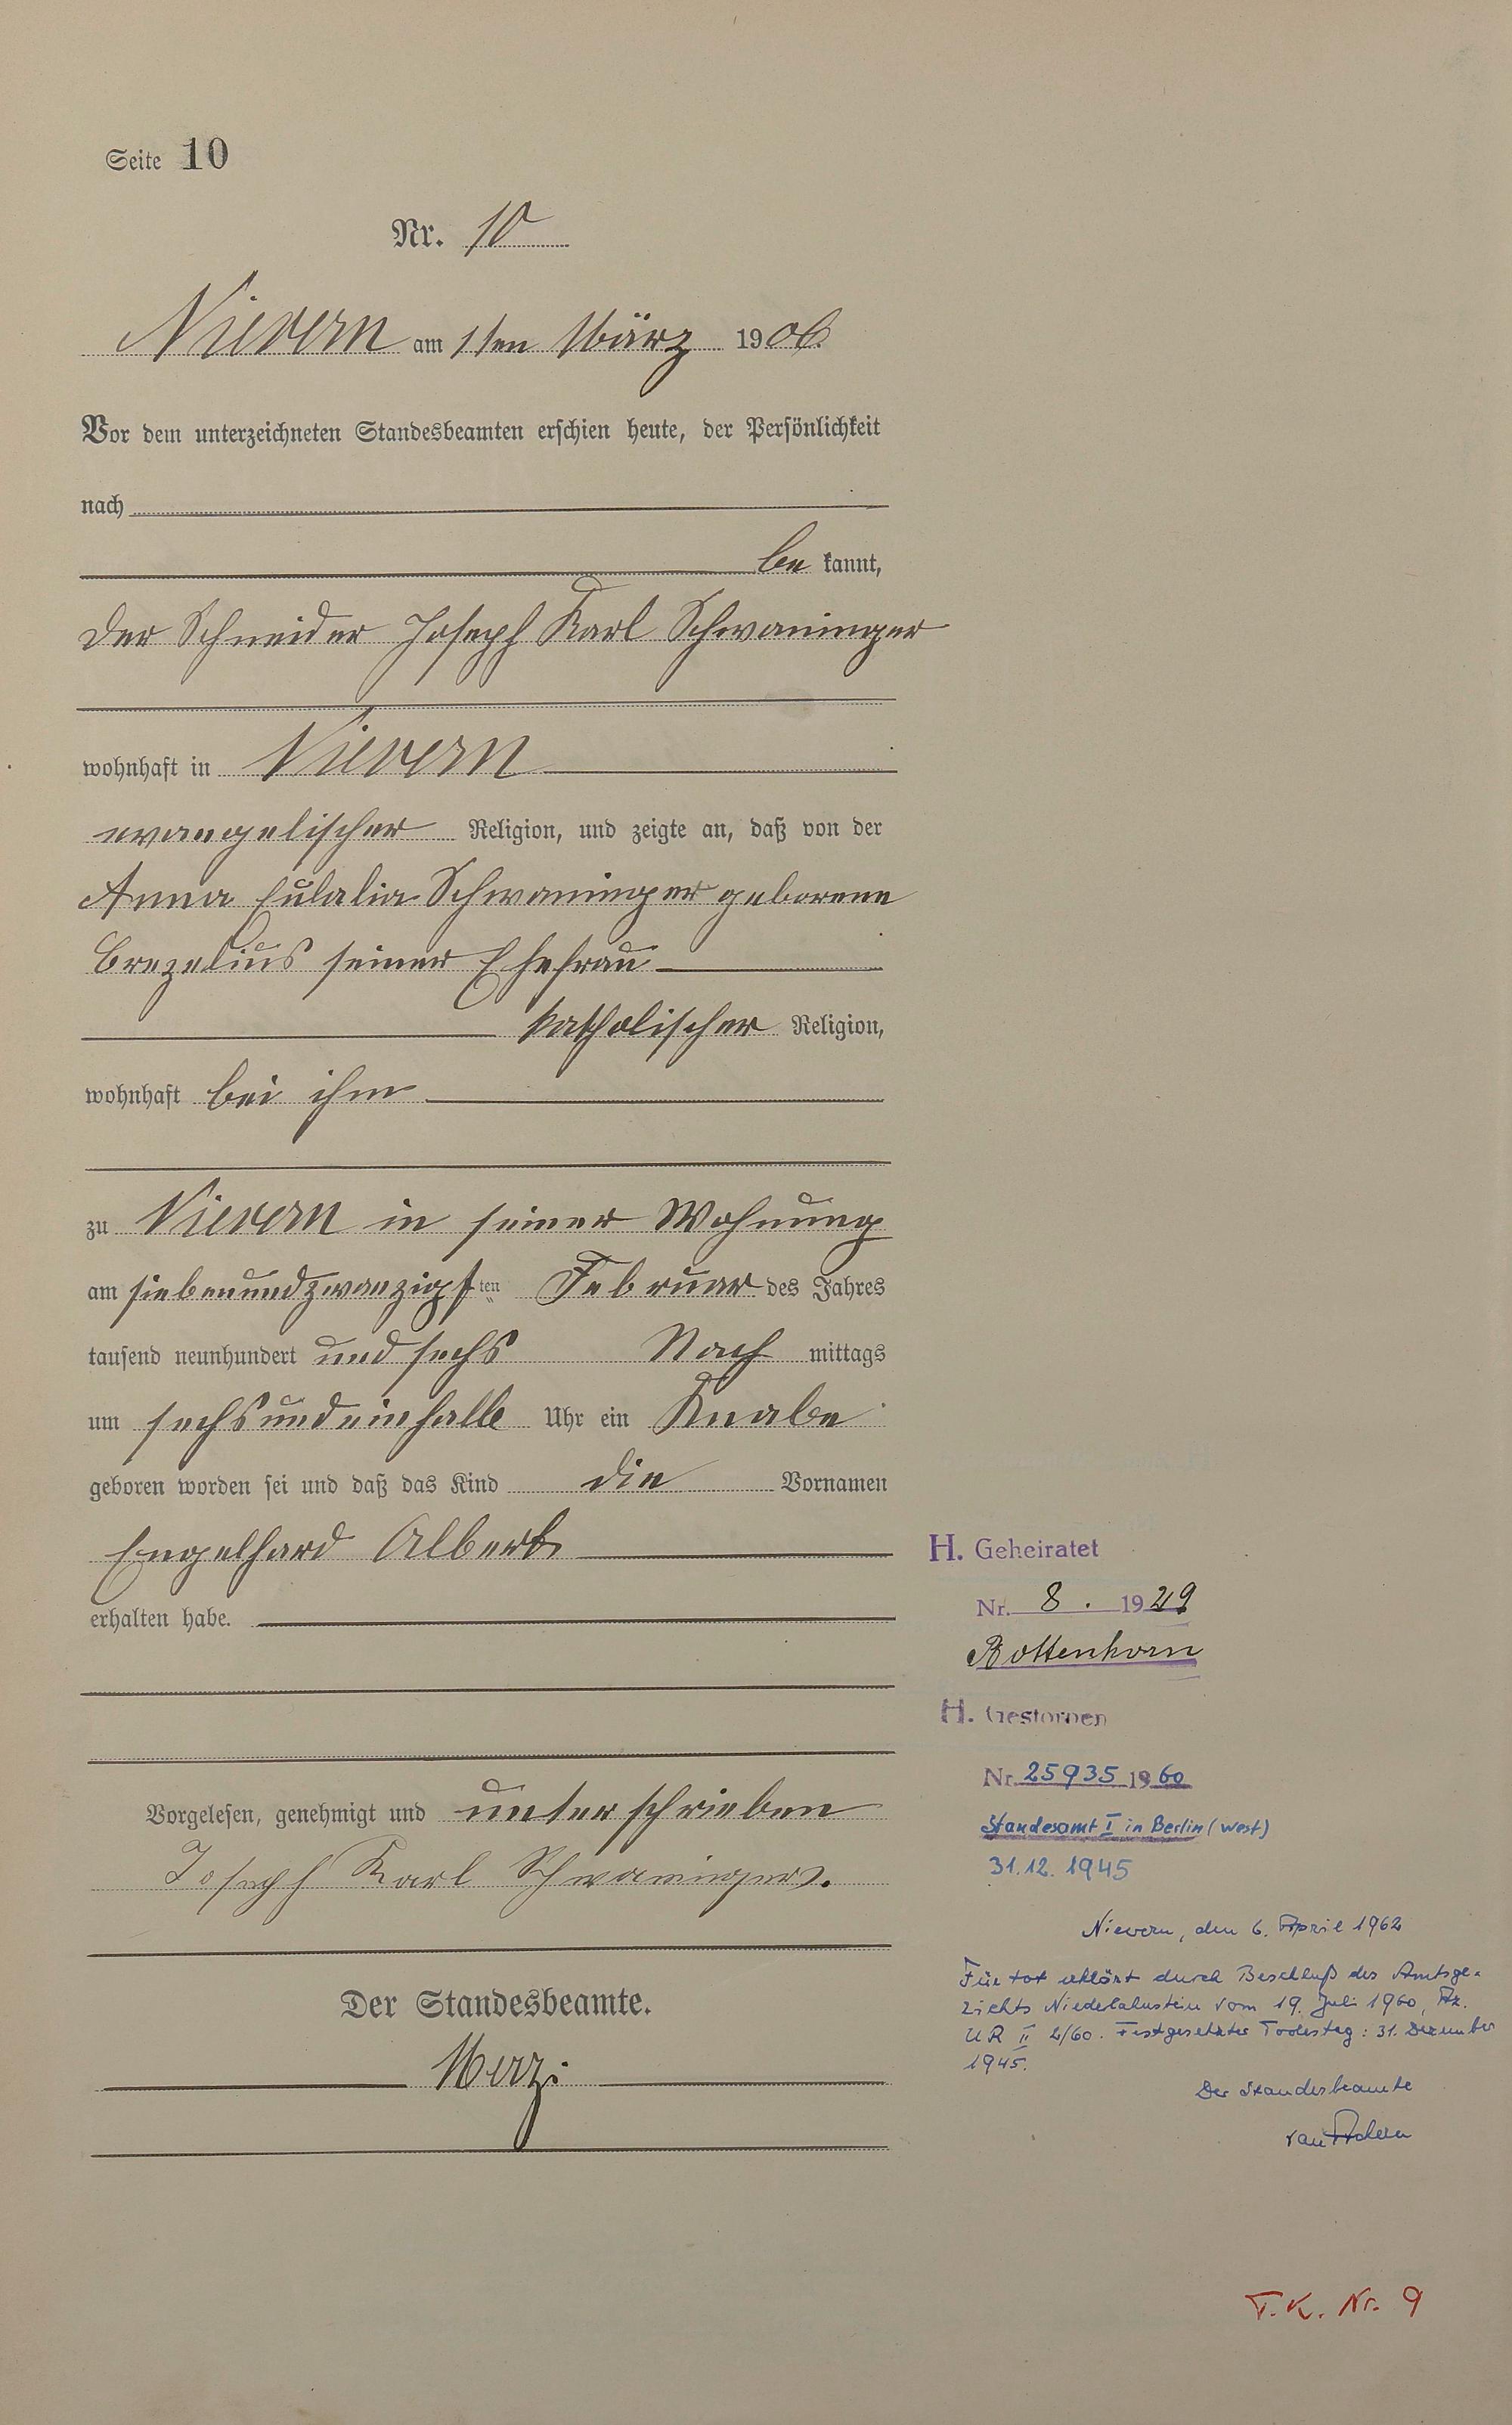 Seite 10
Nr. 10
Nievern am 1ten März 1906.
Vor dem unterzeichneten Standesbeamten erschien heute, der Persönlichkeit
nach
be kannt,
der Schneider Joseph Karl Schwaninger
wohnhaft in Nievern
evangelischer Religion, und zeigte an, daß von der
Anna Eulalia Schwaninger geborene
Brezelius seiner Ehefrau
katholischer Religion,
wohnhaft bei ihm
zu Nievern in seiner Wohnung
am siebenundzwanzigsten Februar des Jahres
tausend neunhundert und sechs Nach mittags
um sechsundeinhalb Uhr ein Knabe
geboren worden sei und daß das Kind die Vornamen
Engelhard Albert
erhalten habe.
Vorgelesen, genehmigt und unterschrieben
Joseph Karl Schwaninger.
Der Standesbeamte.
Merz.
H. Geheiratet
Nr. 8. 1929
Rottenhorn
H. Gestorben
Nr. 25935 1960
Standesamt I in Berlin (West)
31.12.1945
Nievern, den 6. April 1962
Für tot erklärt durch Beschluß des Amtsge-
richts Niederlahnstein vom 19. Juli 1960, Az.
UR II 2/60. Festgesetzter Todestag: 31. Dezember
1945.
Der Standesbeamte
T.K. Nr. 9